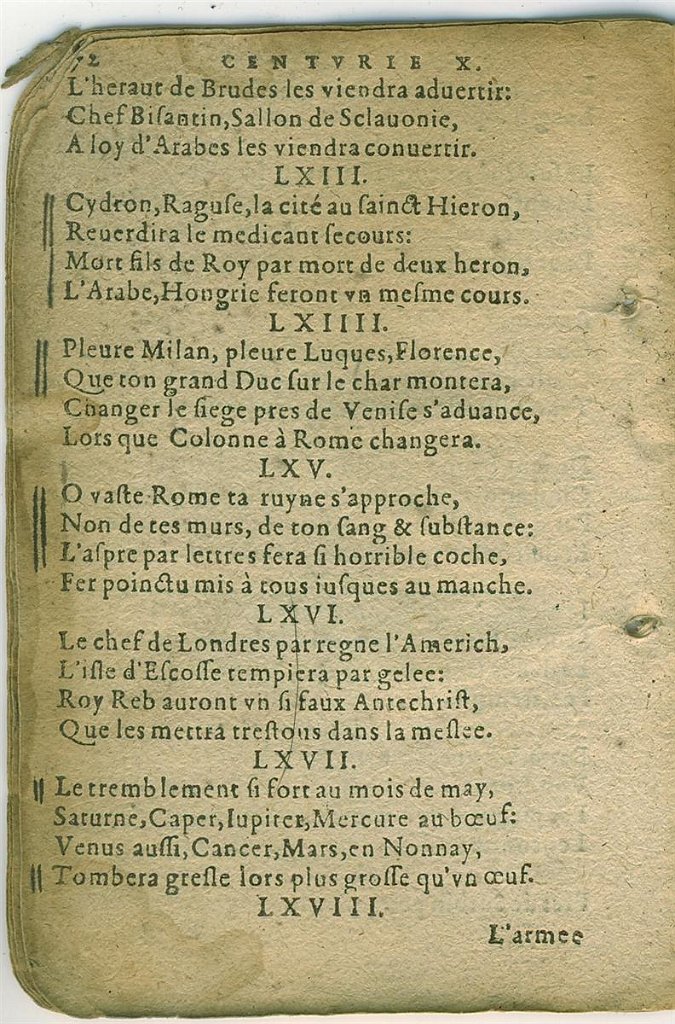 72 CENTVRIE X.
L'heraut de Brudes les viendra aduertir:
Chef Biſantin, Sallon de Sclauonie,
A loy d'Arabes les viendra conuertir.
LXIII.
Cydron, Raguſe, la cité au ſainct Hieron,
Reuerdira le medicant ſecours:
Mort fils de Roy par mort de deux heron,
L'Arabe, Hongrie feront vn meſme cours.
LXIIII.
Pleure Milan, pleure Luques, Florence,
Que ton grand Duc ſur le char montera,
Changer le ſiege pres de Veniſe s'aduance,
Lors que Colonne à Rome changera.
LXV.
O vaſte Rome ta ruyne s'approche,
Non de tes murs, de ton ſang & ſubſtance:
L'aſpre par lettres fera ſi horrible coche,
Fer poinctu mis à tous iuſques au manche.
LXVI.
Le chef de Londres par regne l'Americh,
L'iſle d'Eſcoſſe tempiera par gelee:
Roy Reb auront vn ſi faux Antechriſt,
Que les mettra treſtous dans la meſlee.
LXVII.
Le tremblement ſi fort au mois de may,
Saturne, Caper, Iupiter, Mercure au bœuf:
Venus auſſi, Cancer, Mars, en Nonnay,
Tombera greſſe lors plus groſſe qu'vn œuf.
LXVIII.
L'armee